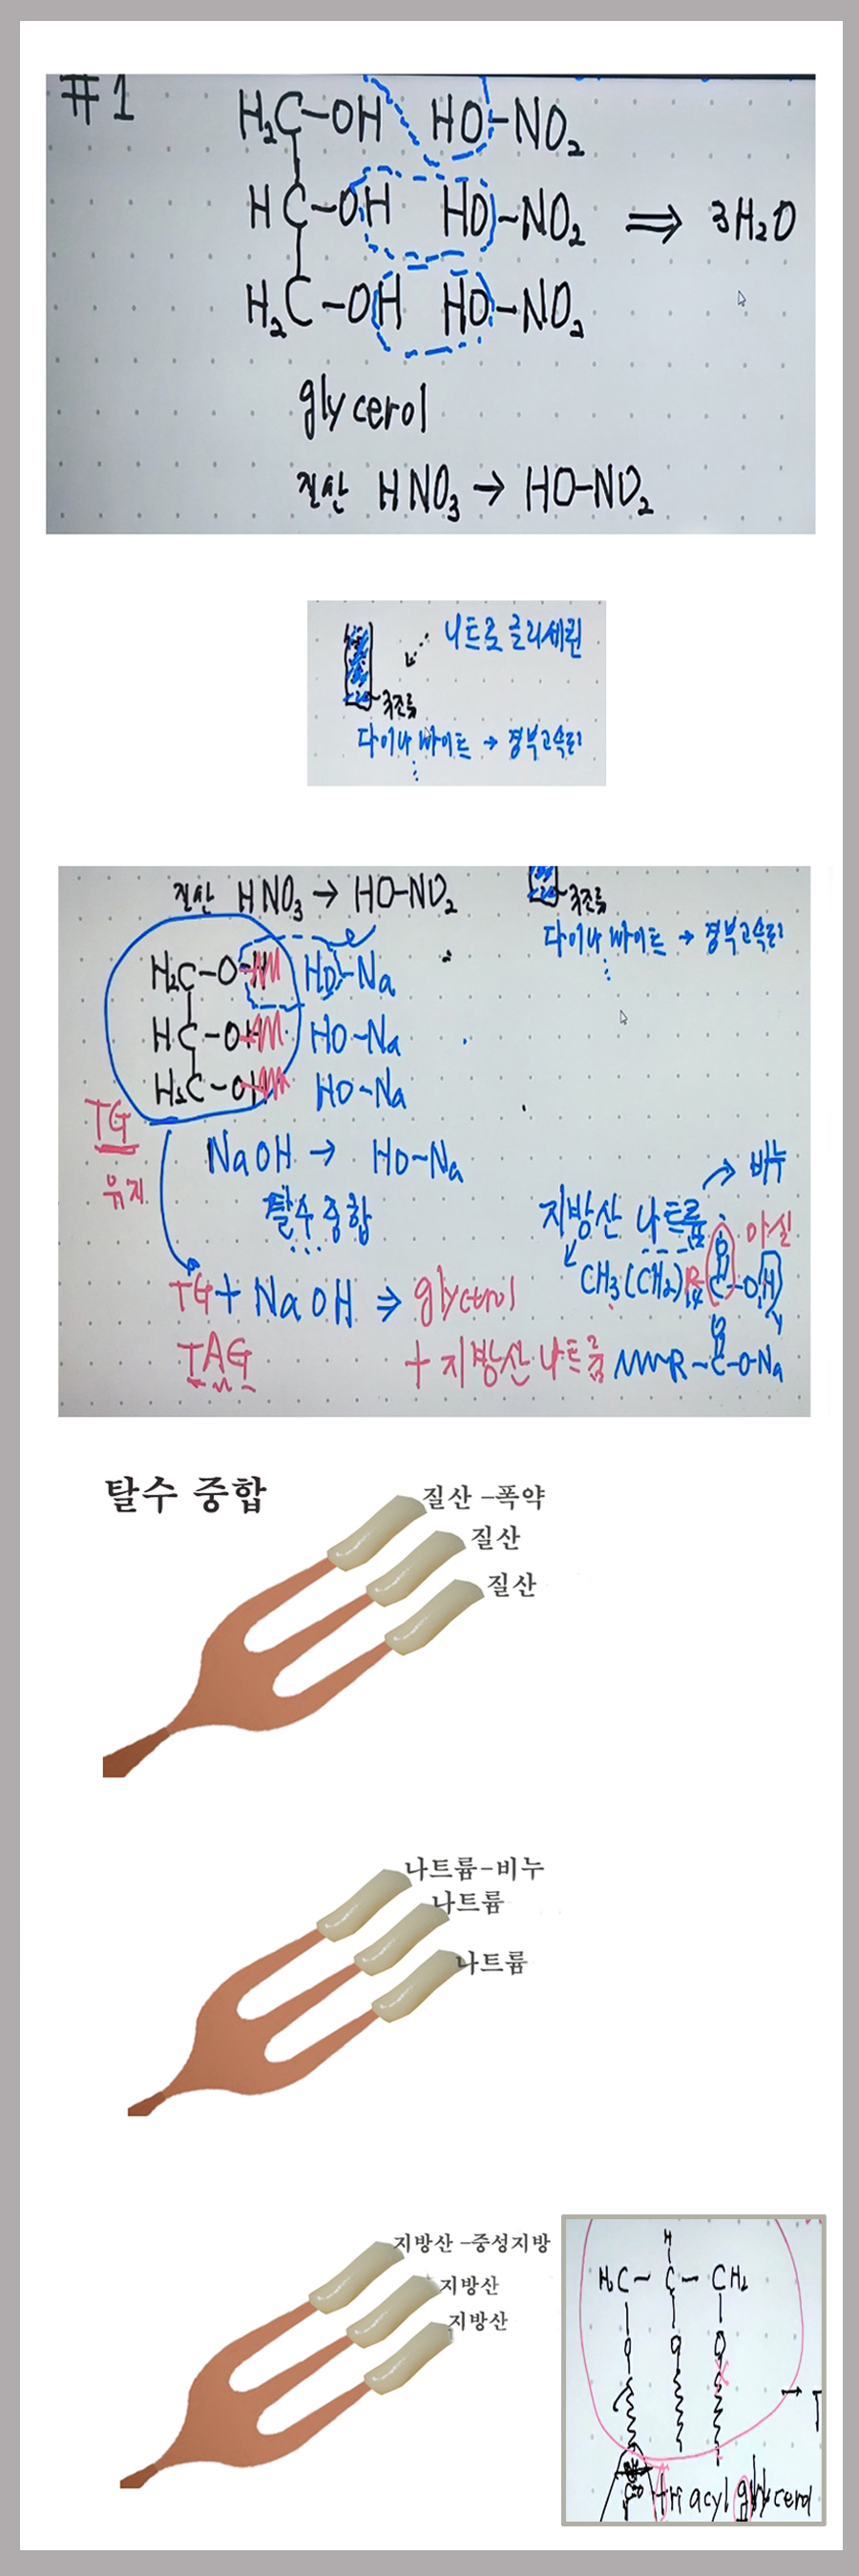 #1
H₂C-OH HO-NO₂
HC-OH HO-NO₂ ⇒ 3H₂O
H₂C-OH HO-NO₂
glycerol
질산 HNO₃ → HO-NO₂
니트로 글리세린
규조류
다이나마이트 → 경부고속도로
질산 HNO₃ → HO-NO₂
규조류
다이나마이트 → 경부고속도로
H₂C-O HO-Na
HC-OH HO-Na
H₂C-OH HO-Na
TG
유지
NaOH → HO-Na
탈수중합
비누
지방산 나트륨
아실
CH₃(CH₂)₁₄ R-C-OH
O
TG + NaOH ⇒ glycerol
TAG
+ 지방산 나트륨
R-C-O-Na
O
탈수 중합
질산 -폭약
질산
질산
나트륨-비누
나트륨
나트륨
지방산 -중성지방
지방산
지방산
H
H₂C-C-CH₂
O O O
tri acyl glycerol